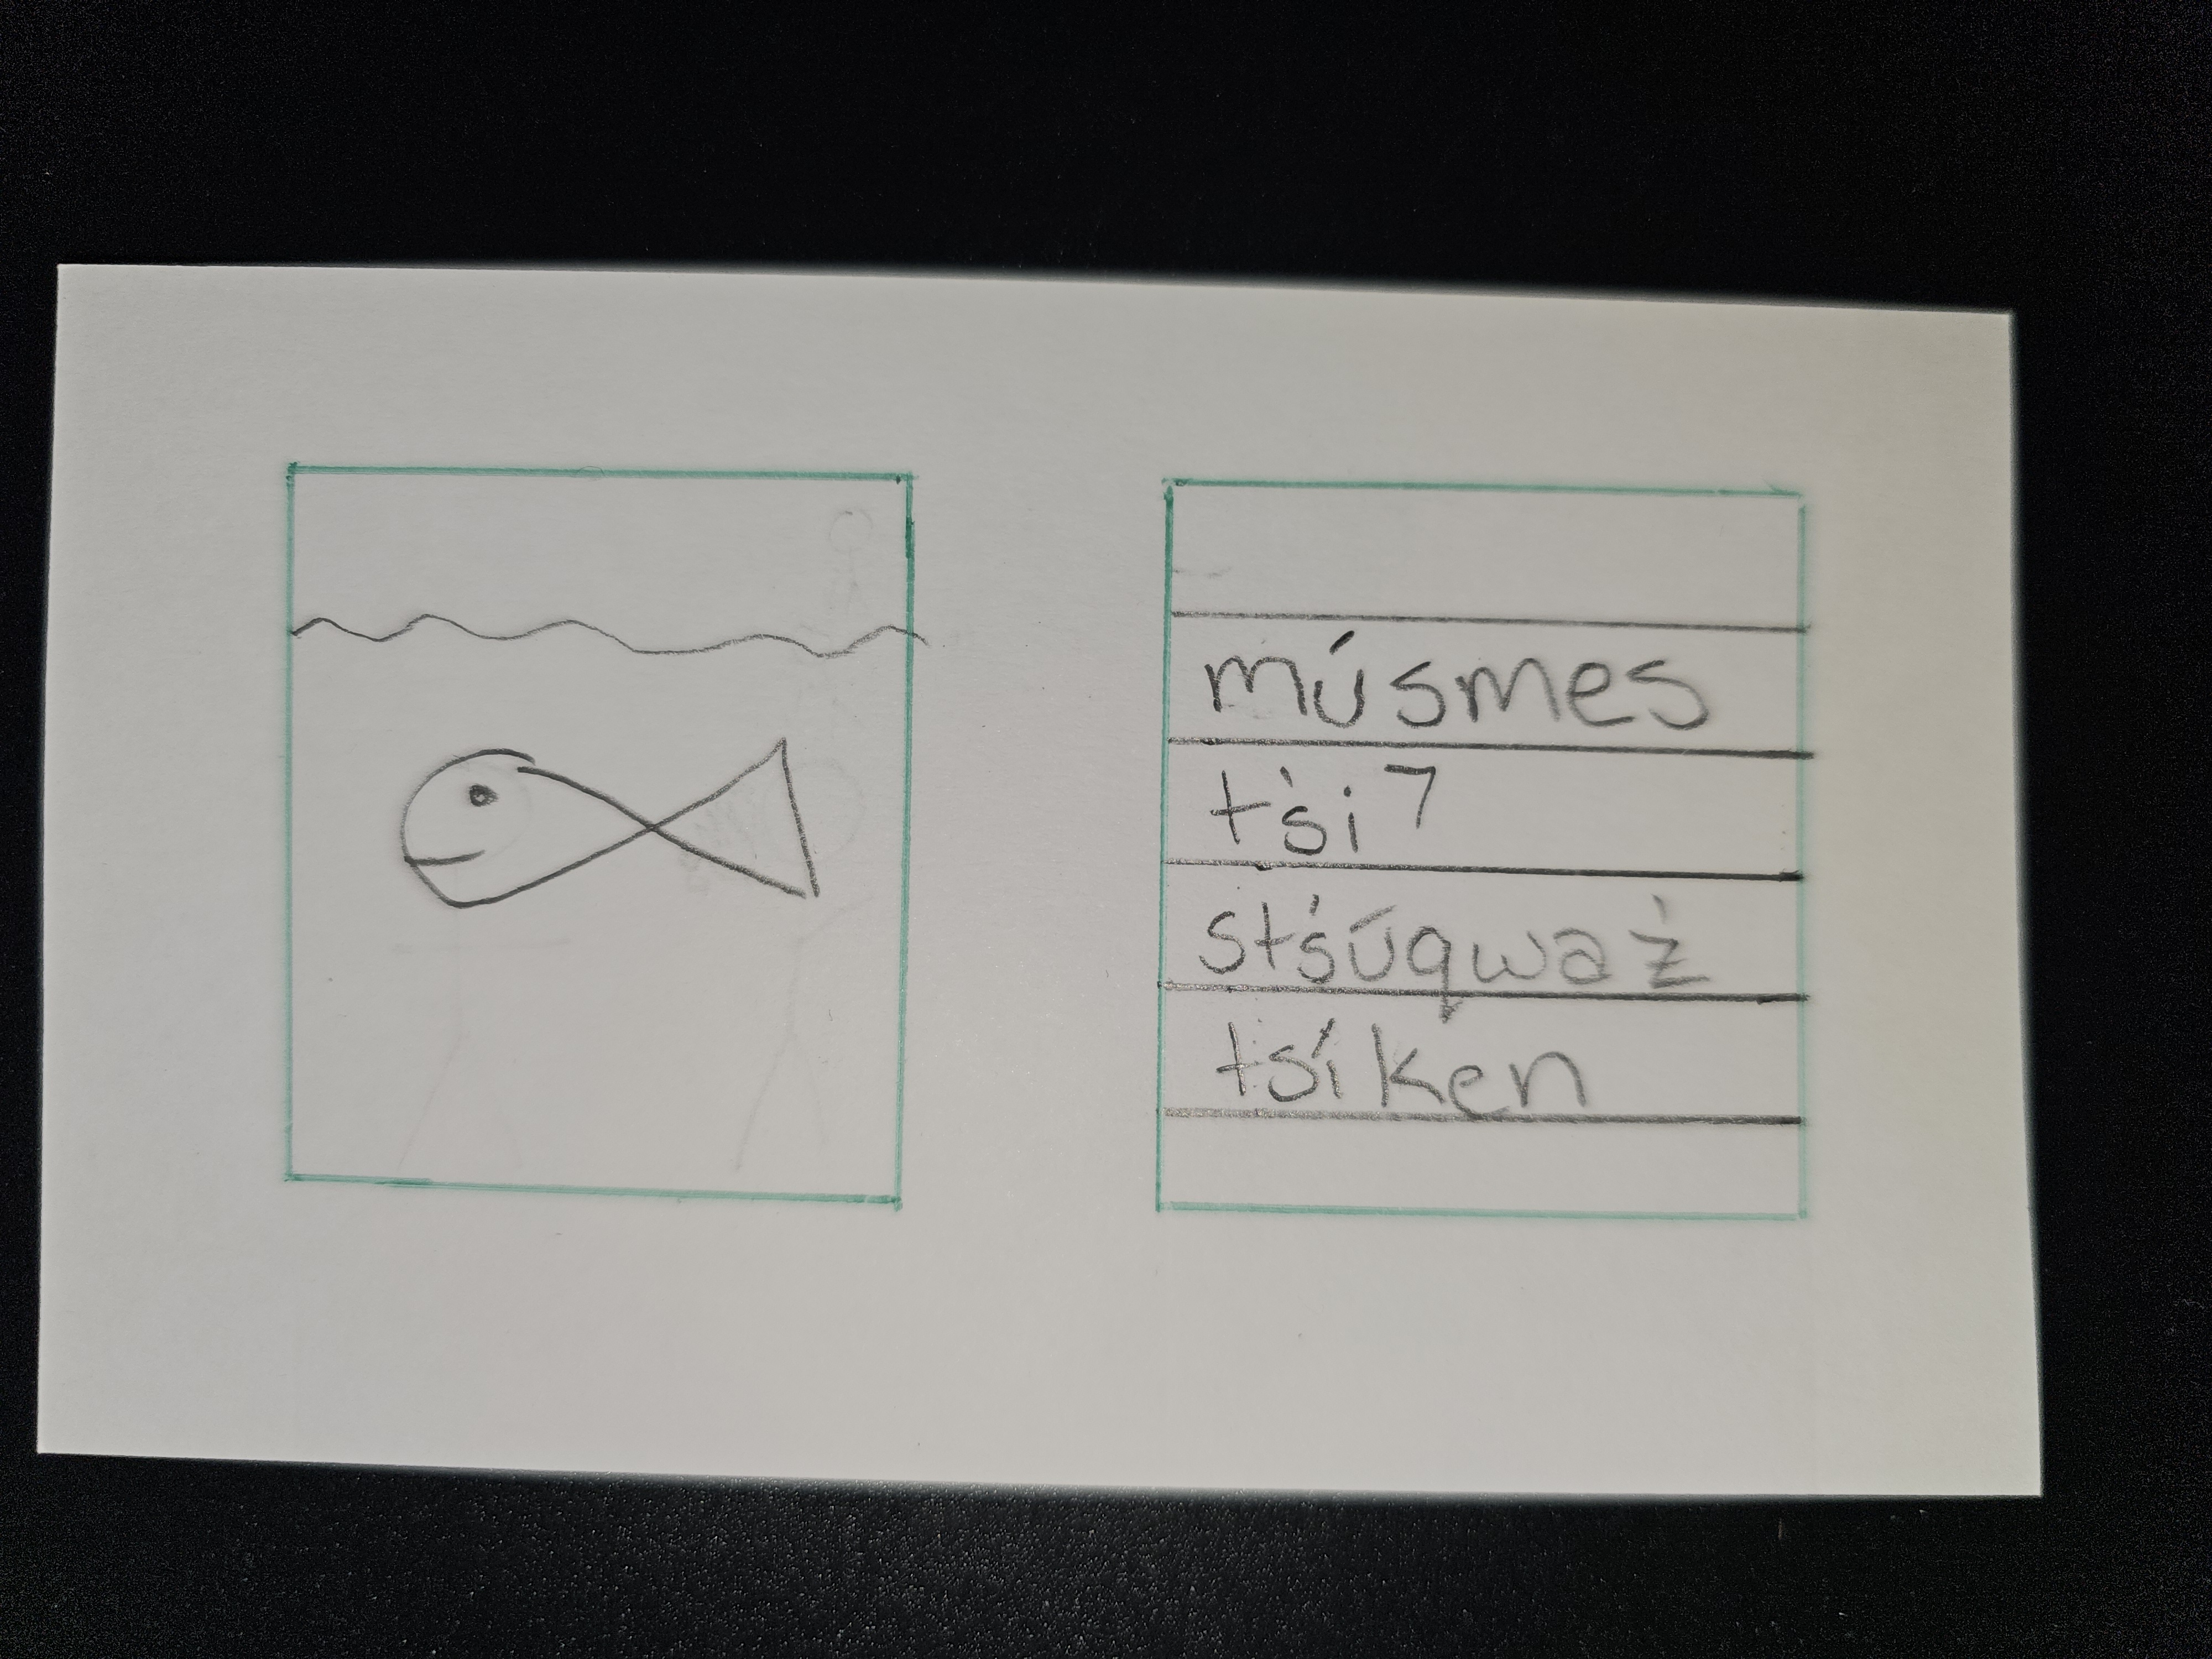 músmes
ts̓i7
sts̓úqwaz̓
tsíken